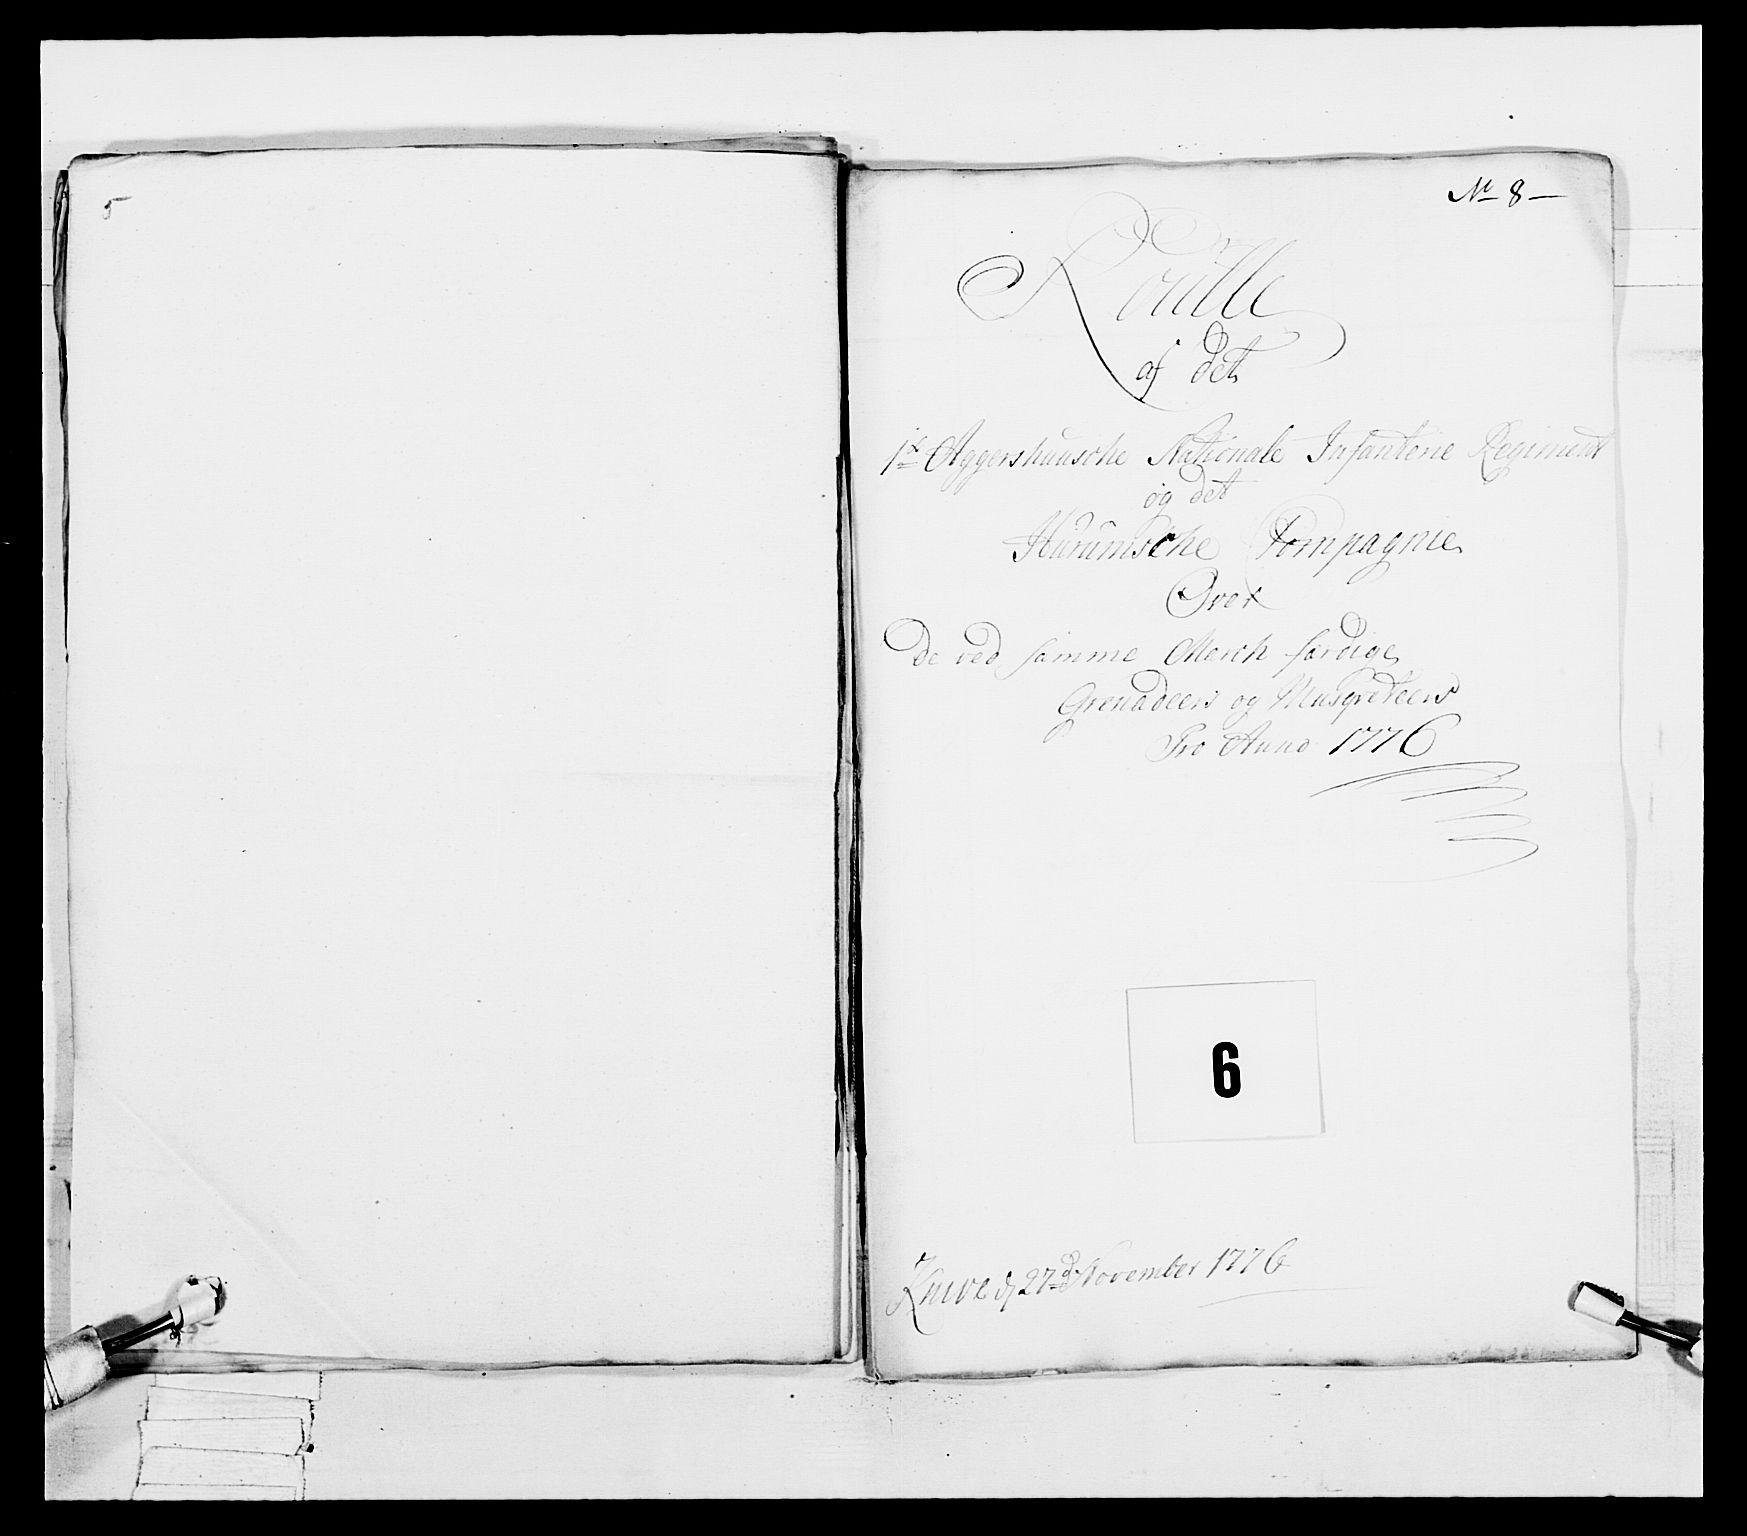 5
No 8 —
Roulle
af det
1te Aggershuusche Nationale Infanterie Regiment
og det
Hurumsche Compagnie
Over
De ved samme March færdige
Grenadeers og Musqveteers
Pro Anno 1776
6
Knive d 27de November 1776